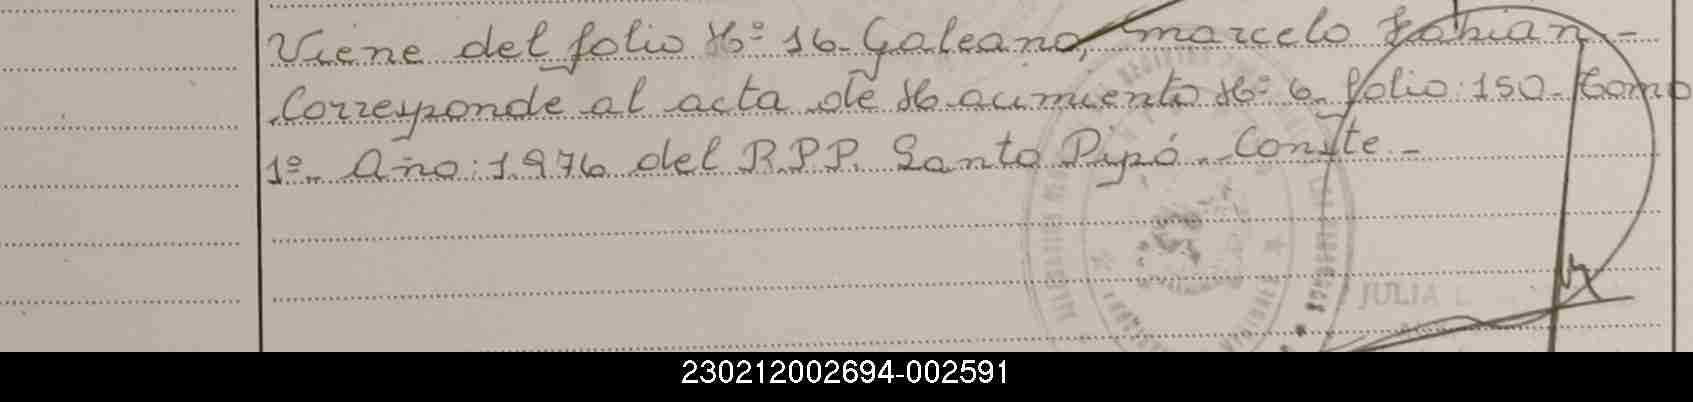 Viene del folio Nº 16. Galeano, Marcelo Fabian -
Corresponde al acta de Nacimiento Nº 6. folio: 150. Tomo
1º. Año: 1.976 del R.P.P. Santo Pipó. Conste -
JULIA
230212002694-002591